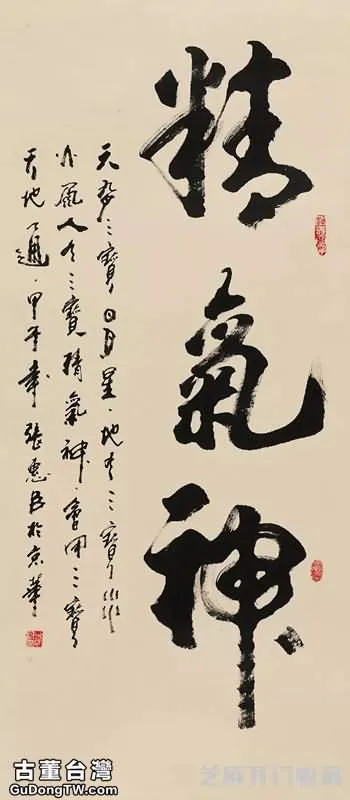 精氣神
天有三寶日月星·地有三寶水
火風人有三寶精氣神·會用三寶
天地通·甲午年張惠臣於京華
古董台灣
GuDongTW.com
芝麻开门